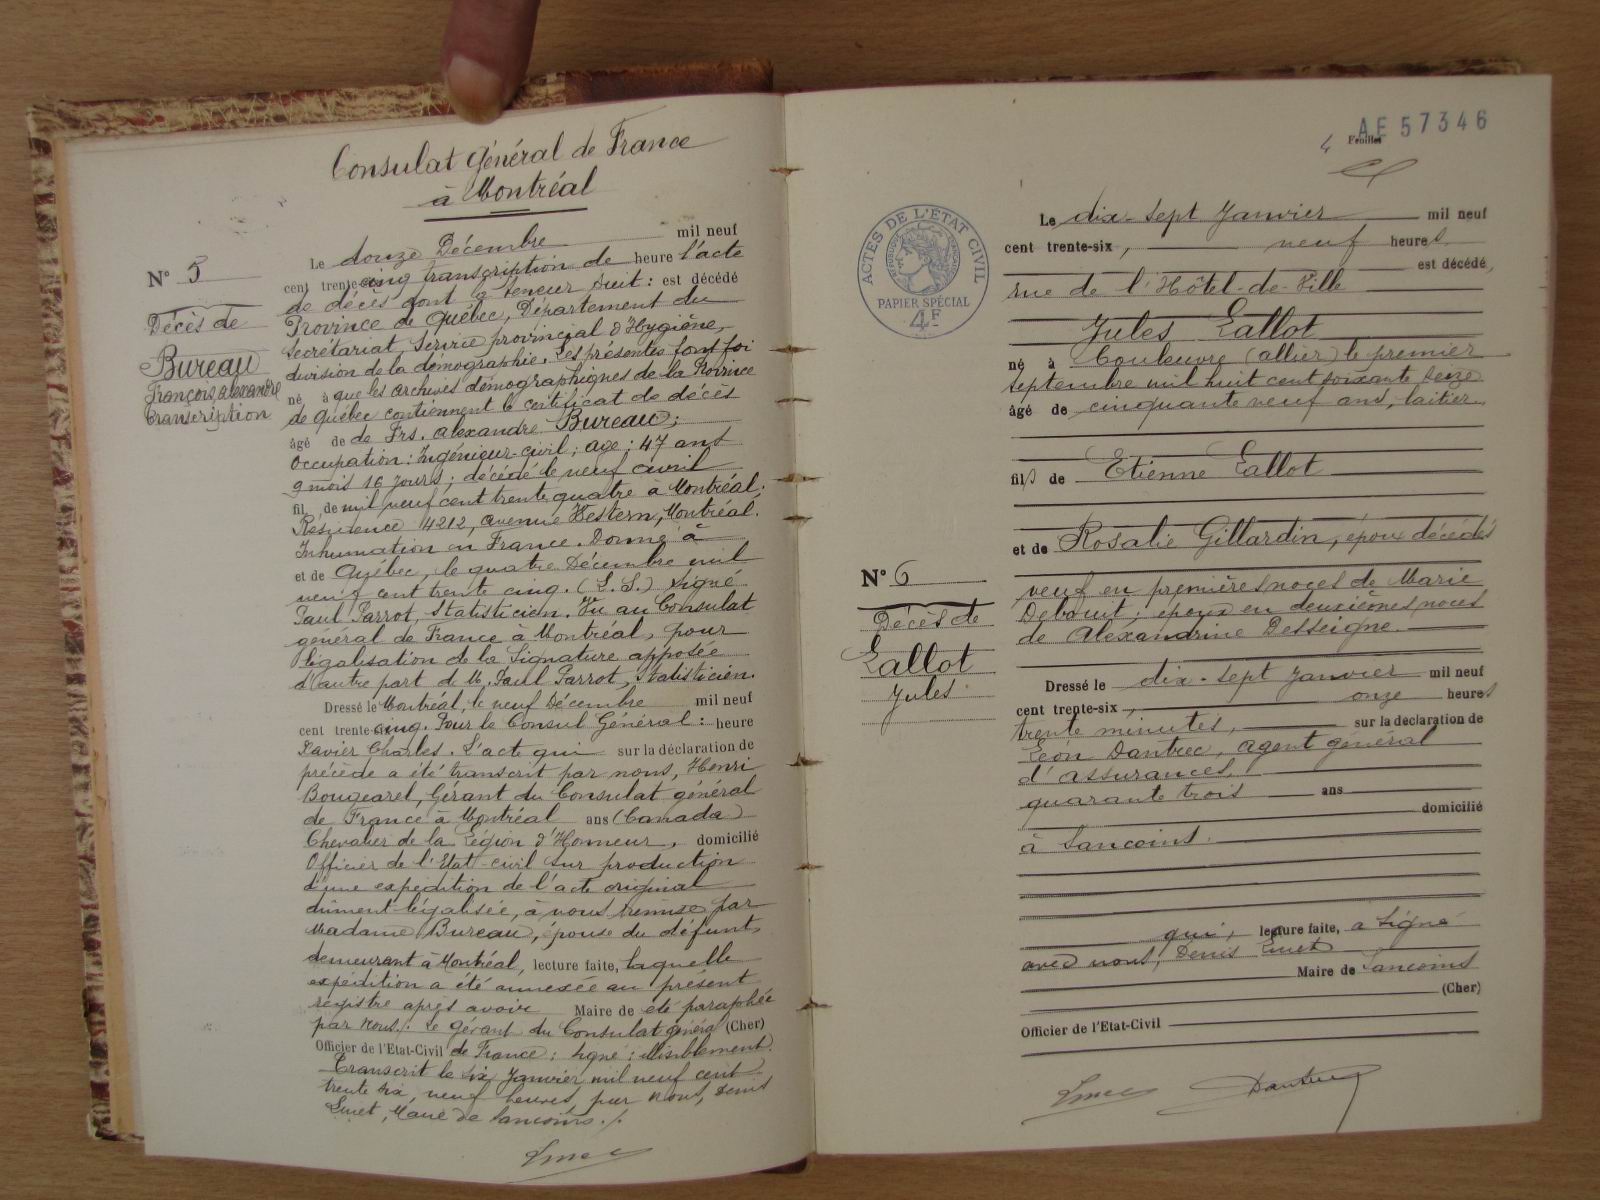 Consulat Général de France
à Montréal
N° 5
Décès de
Bureau
François, Alexandre
Transcription
Le douze Décembre mil neuf
cent trente-cinq transcription de heure l'acte
de décès dont la teneur suit : est décédé
Province de Québec, Département du
Secrétariat, Service provincial d'Hygiène,
division de la démographie. Les présentes font foi
né à que les archives démographiques de la Province
de Québec contiennent le certificat de décès
âgé de de Frs. Alexandre Bureau ;
Occupation : Ingénieur-civil ; age : 47 ans
9 mois 16 jours ; décédé le neuf avril
fil de mil neuf cent trente quatre à Montréal.
Résidence 4212, avenue Western, Montréal.
Inhumation en France. Donné à
et de Québec, le quatre Décembre mil
neuf cent trente cinq. (L.S.) signé
Paul Parrot, Statisticien. Vu au Consulat
général de France à Montréal, pour
légalisation de la Signature apposée
d'autre part de M. Paul Parrot, Statisticien.
Dressé le Montréal, le neuf Décembre mil neuf
cent trente-cinq. Pour le Consul Général : heure
Xavier Charles. L'acte qui sur la déclaration de
précède a été transcrit par nous, Henri
Bougearel, Gérant du Consulat général
de France à Montréal ans (Canada)
Chevalier de la Légion d'Honneur, domicilié
Officier de l'Etat-civil sur production
d'une expédition de l'acte original
dûment légalisée, à nous remise par
Madame Bureau, épouse du défunt,
demeurant à Montréal, lecture faite, laquelle
expédition a été annexée au présent
registre après avoir Maire de été paraphée
par nous./. Le gérant du Consulat général (Cher)
Officier de l'Etat-Civil de France : signé : illisiblement.
Transcrit le six Janvier mil neuf cent
trente six, neuf heures, par Nous, Denis
Maire de Sancoins./.
AE 57346
4 Feuillet
ACTES DE L'ÉTAT CIVIL
RÉPUBLIQUE FRANÇAISE
PAPIER SPÉCIAL
4F
Le dix-sept Janvier mil neuf
cent trente-six, neuf heures
est décédé,
rue de l'Hôtel-de-Ville
Jules Lallot
né à Couleuvre (Allier) le premier
septembre mil huit cent soixante seize
âgé de cinquante neuf ans, laitier,
fils de Etienne Lallot
et de Rosalie Gillardin, époux décédés
N° 6
Décès de
Lallot
Jules
veuf en premières noces de Marie
époux en deuxièmes noces
de Alexandrine Desseigne.
Dressé le dix-sept Janvier mil neuf
cent trente-six, onze heures
trente minutes, sur la déclaration de
Léon Dautrec, agent général
d'assurances,
quarante trois ans
domicilié
à Sancoins.
qui, lecture faite, a signé
avec nous, Denis
Maire de Sancoins
(Cher)
Officier de l'Etat-Civil